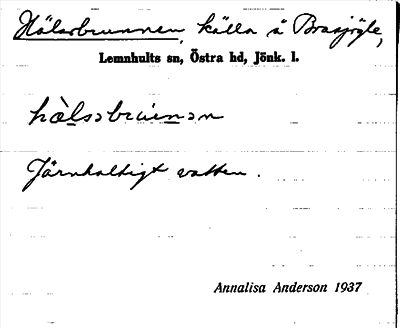 Hälsobrunnen, källa å Brasjögle,
Lemnhults sn, Östra hd, Jönk. l.
hä̀lsɔbrɯnɔn
Järnhaltigt vatten.
Annalisa Anderson 1937